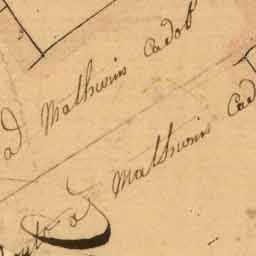 D Mathurin Cadot
& Mathurin Cad